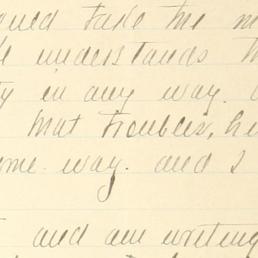 take the
understands
in any way.
that troubles, h
way. and I
and am writing